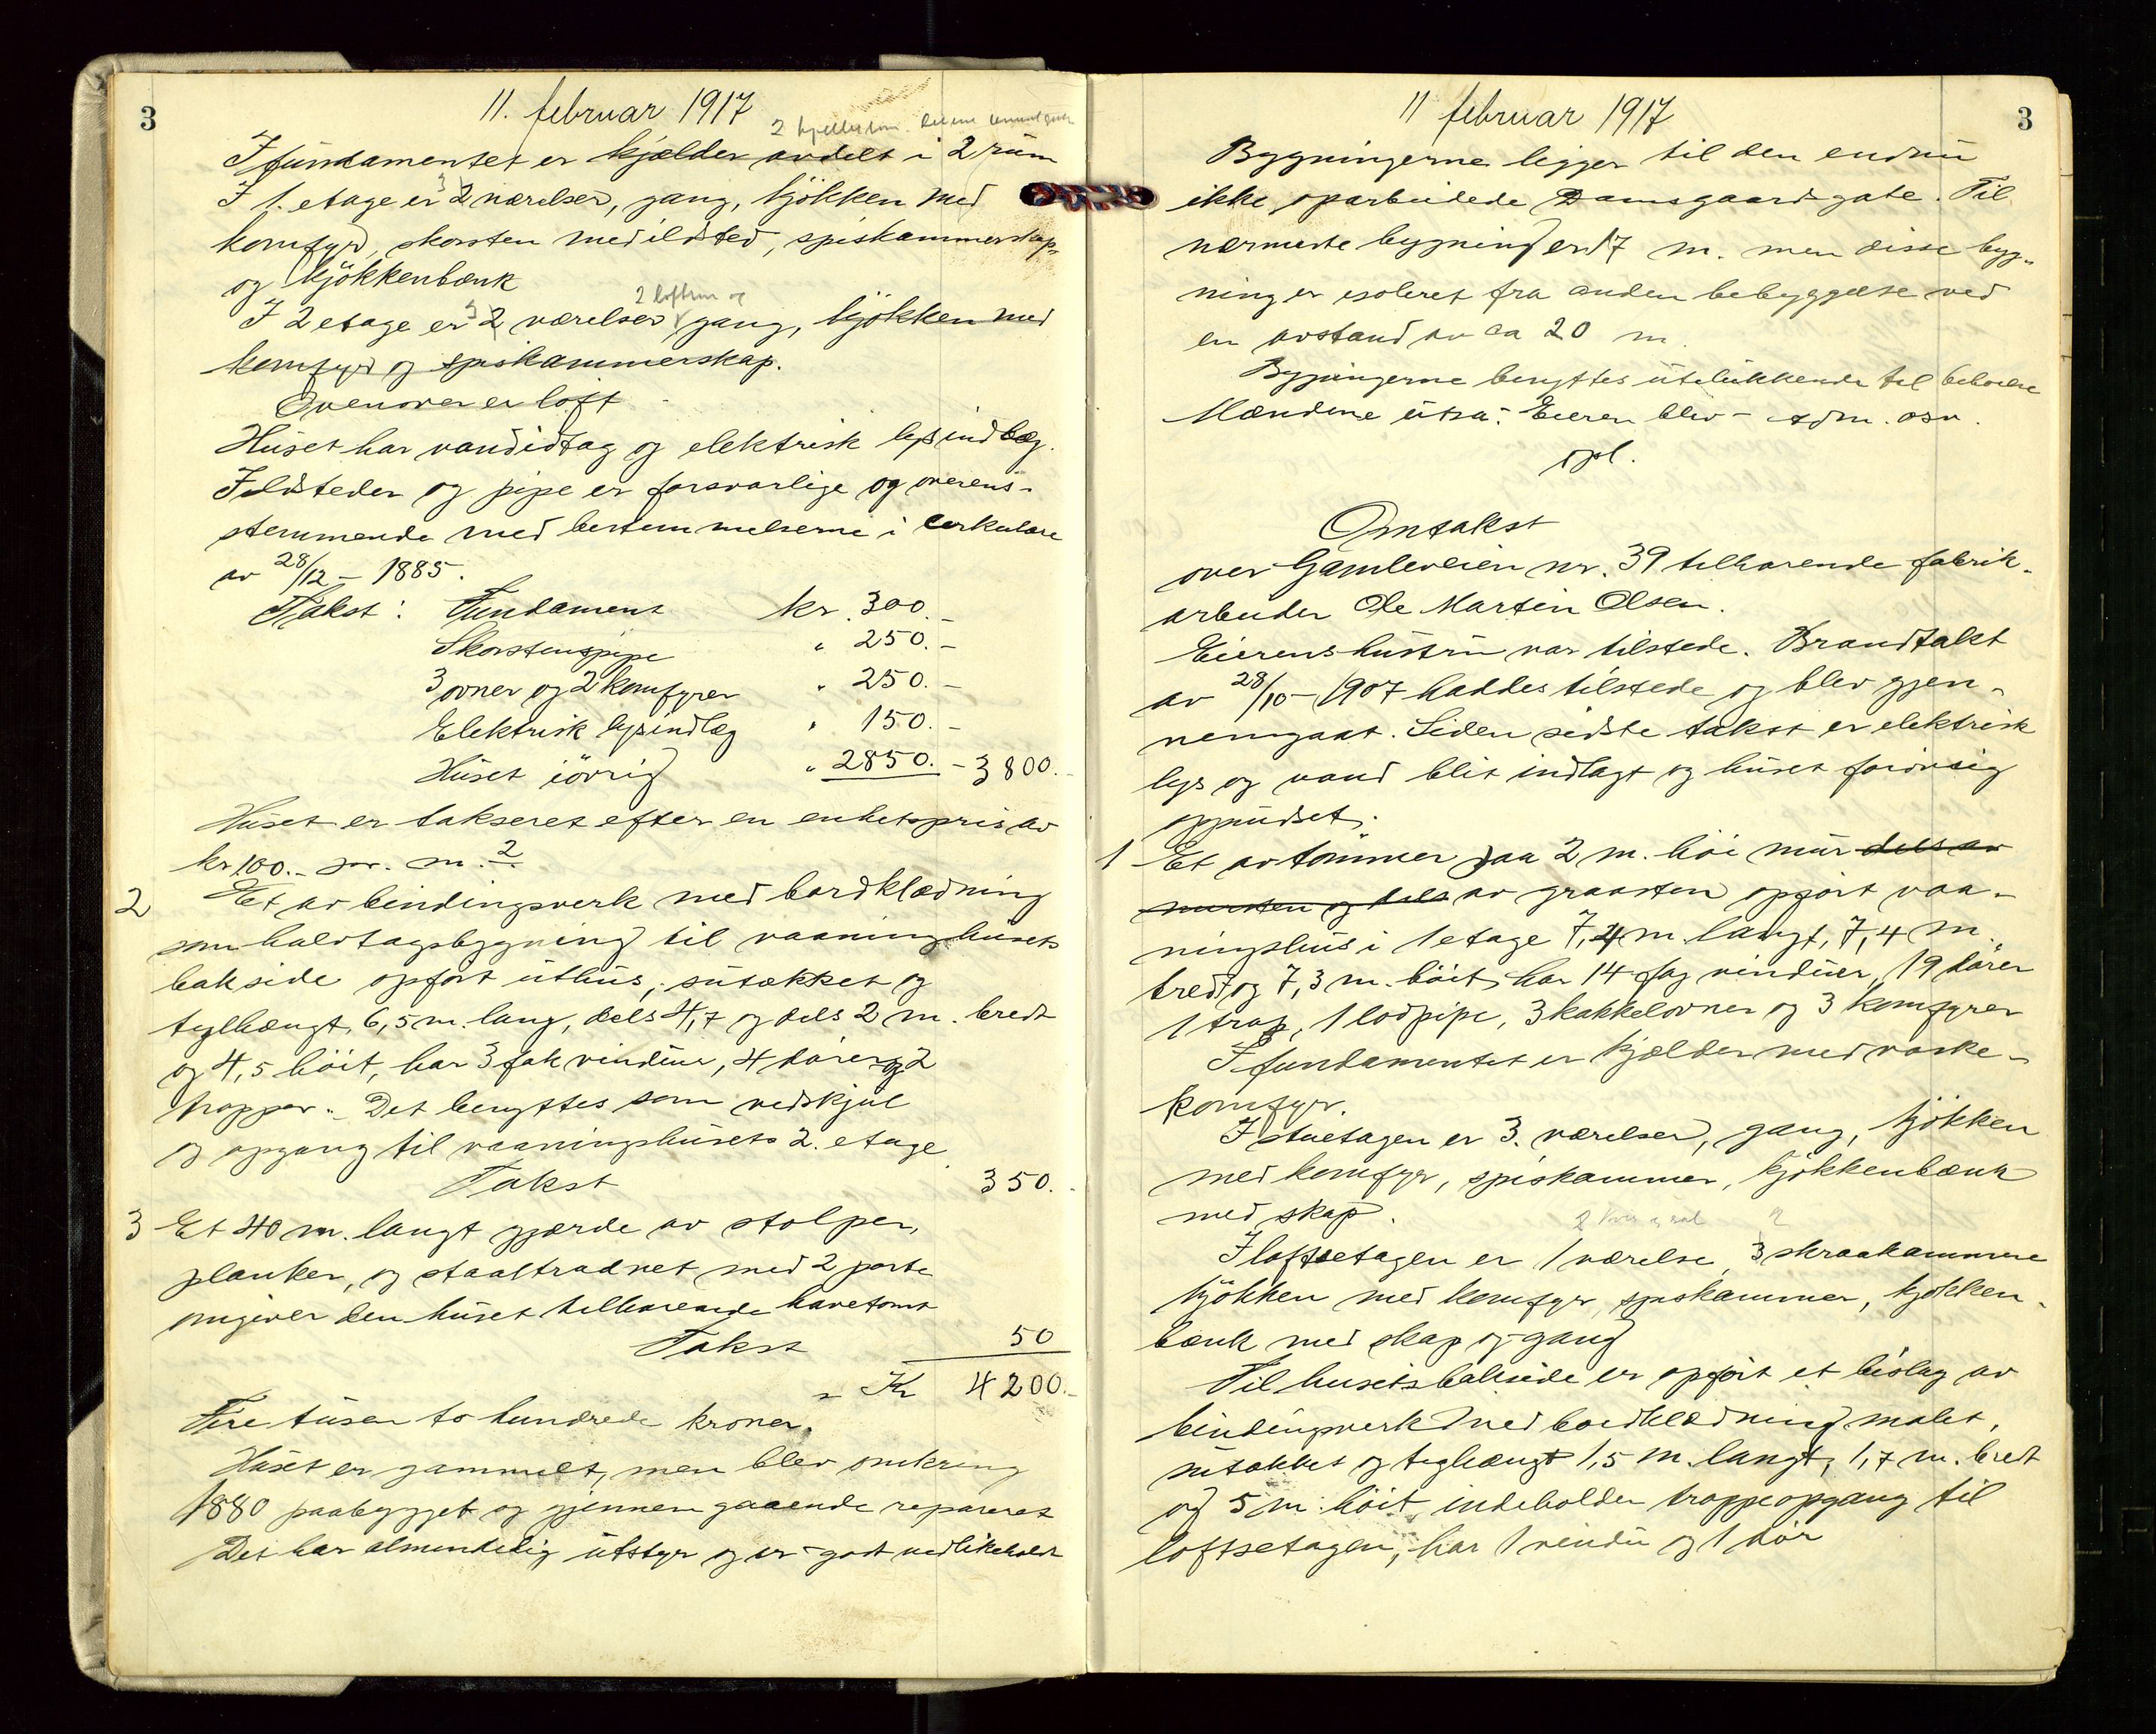 3
11. februar 1917
2 kjellerrum
I fundamentet er kjælder avdelt i 2 rum
I 1. etage er 3 2 værelser, gang, kjökken med
komfyr, skorsten med ildsted, spiskammerskap,
og kjökkenbænk
2 loftrum og
I 2 etage er 3 2 værelser gang, kjökken med
komfyr og spiskammerskap.
Ovenover er loft
Huset har vandidtag og elektrisk lysindlæg.
Ildsteder og pipe er forsvarlige og overens-
stemmende med bestemmelserne i cirkulære
av 28/12 - 1885.
Takst: Fundament kr. 300.-
Skorstenspipe " 250.-
3 ovner og 2 komfyrer " 250.-
Elektrisk lysindlæg " 150.-
Huset iövrig " 2850.- 3800.-
Huset er takseret efter en enhetspris av
kr. 100.- pr. m.2
2 Et av bindingsverk med bordklædning
som halvtagsbygning til vaaningshusets
bakside opfört uthus, sutækket og
teglhængt, 6,5 m. lang, dels 4,7 og dels 2 m. bredt
og 4,5 höit, har 3 fak vinduer, 4 dörer og 2
trapper. Det benyttes som vedskjul
og opgang til vaaningshusets 2. etage.
Takst 350.-
3 Et 40 m. langt gjærde av stolper,
planker, og staaltraadnet med 2 porte
omgiver den huset tilhørende havetomt
Takst 50
Kr 4200.-
Fire tusen to hundrede kroner.
Huset er gammelt, men blev omkring
1880 paabygget og gjennemgaaende reparert
Det har almindelig utstyr og er godt vedlikeholdt
3
11 februar 1917
Bygningerne ligger til den endnu
ikke oparbeidede Damsgaardsgate. Til
nærmeste bygning er 17 m. men disse byg-
ning er isoleret fra anden bebyggelse ved
en avstand av ca 20 m.
Bygningerne benyttes utelukkende til beboelse
Mændene utsa: Eieren blev - som. osv.
opl.
Omtakst
over Gamleveien nr. 39 tilhørende fabrik-
arbeider Ole Martin Olsen.
Eierens hustru var tilstede. Brandtakt
av 28/10 - 1907 haddes tilstede og blev gjen-
nemgaat. Siden sidste takst er elektrisk
lys og vand blit indlagt og huset forövrig
oppudset.
1 Et av tömmer paa 2 m. höi mur dels av
mursten og dels av graasten opfört vaa-
ningshus i 1 etage 7,4 m. langt, 7,4 m.
bredt og 7,3 m. höit, har 14 fag vinduer, 19 dörer
1 trap, 1 lodpipe, 3 kakkelovner og 3 komfyrer
I fundamentet er kjælder med vaske-
komfyr.
I stuetagen er 3. værelser, gang, kjökken
med komfyr, spiskammer, kjökkenbænk
med skap.
2
I loftsetagen er 1 værelse, 3 skraakammere
kjökken med komfyr, spiskammer, kjökken-
bænk med skap og gang
Til husets bakside er opfört et bislag av
bindingsverk med bordklædning malet,
sutækket og teglhængt 1,5 m. langt, 1,7 m. bredt
og 5 m. höit, indeholder trappeopgang til
loftsetagen, har 1 vindu og 1 dör